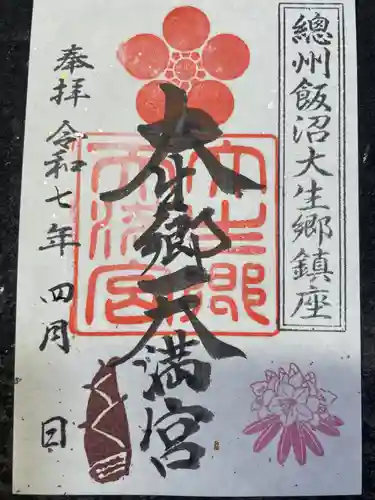 總州飯沼大生郷鎮座
大生郷天満宮
奉拝
令和七年四月 日